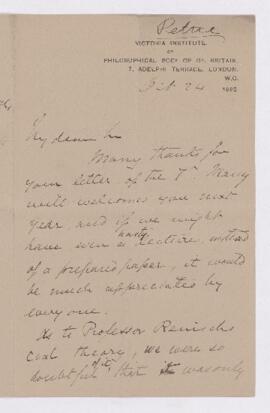 Petrie
VICTORIA INSTITUTE,
OR
PHILOSOPHICAL SOCY OF GT. BRITAIN,
7, ADELPHI TERRACE, LONDON,
W.C.
Oct 24 189
My dear Sir
Many thanks for
your letter of the 7th. Many
will welcome you next
year, and if we might
have even a lecture, instead
of a prepared paper, it would
be much appreciated by
everyone.
As to Professor Reinischs
theory, we were so
doubtful of it that it was only